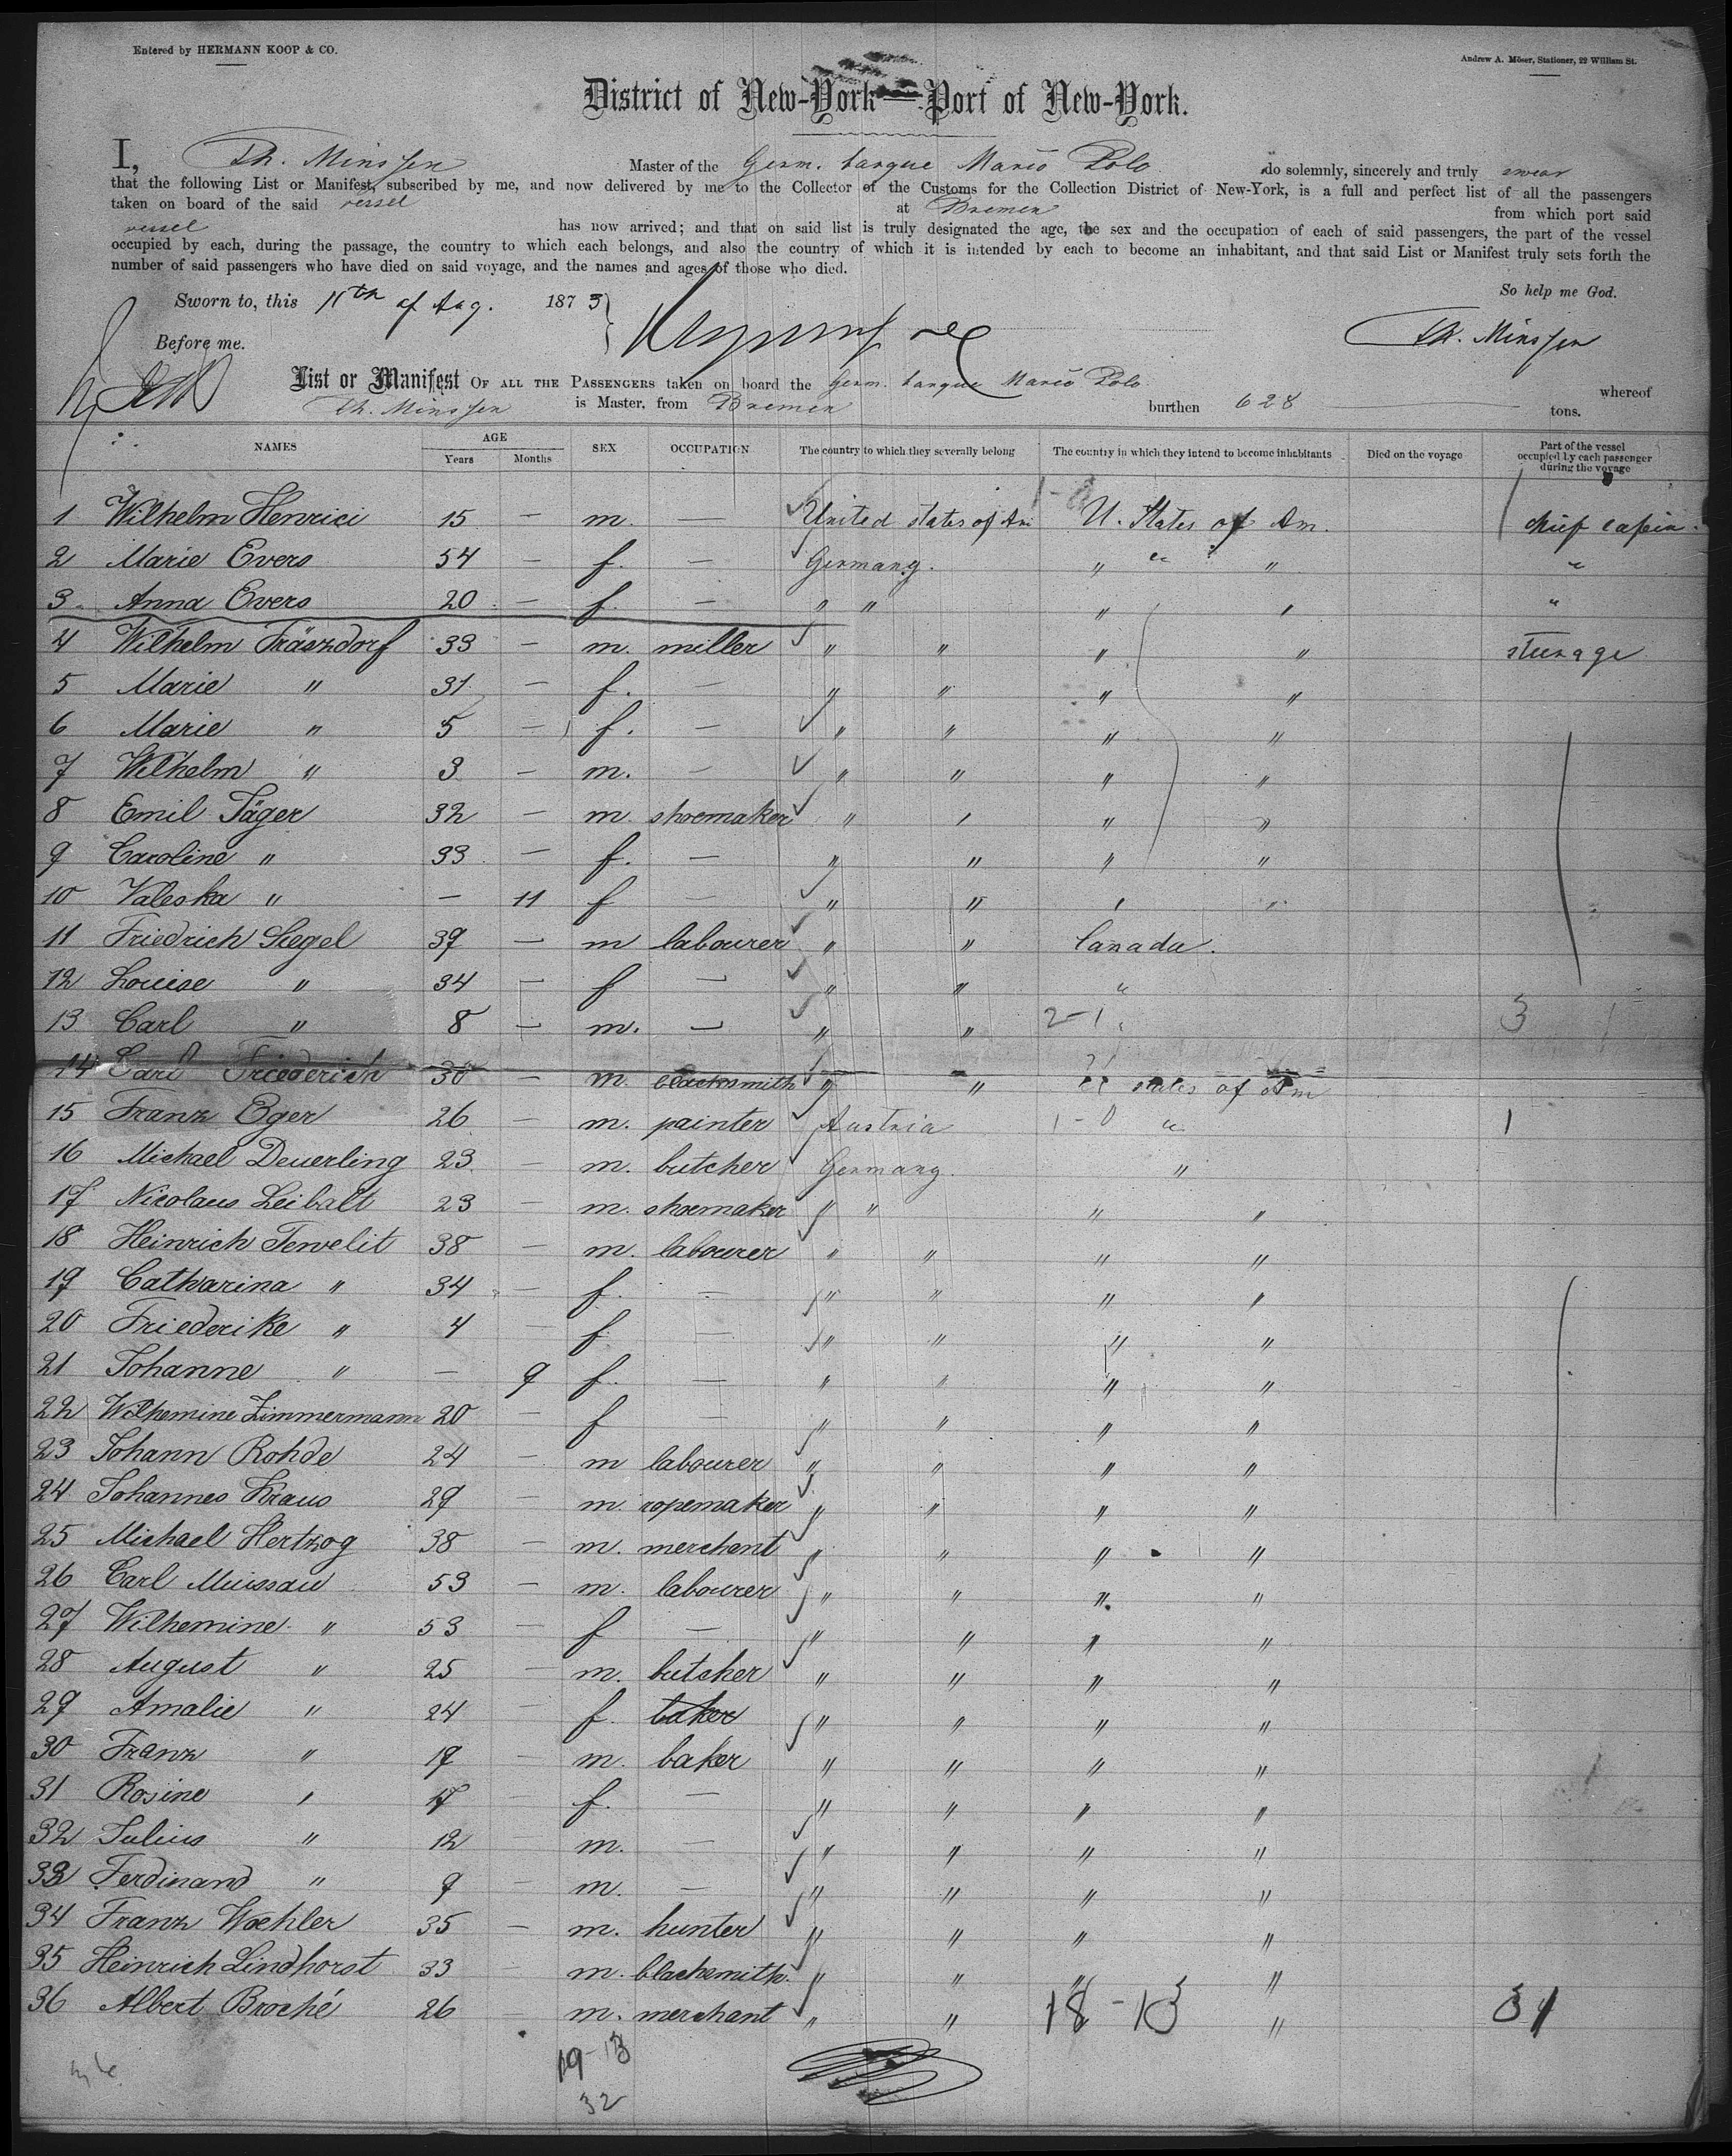 Entered by HERMANN KOOP & CO.
Andrew A. Möser, Stationer, 22 William St.
District of New-York — Port of New-York.
I, Th. Minssen Master of the Germ. barque Marco Polo do solemnly, sincerely and truly swear
that the following List or Manifest, subscribed by me, and now delivered by me to the Collector of the Customs for the Collection District of New-York, is a full and perfect list of all the passengers
taken on board of the said vessel at Bremen from which port said
vessel has now arrived; and that on said list is truly designated the age, the sex and the occupation of each of said passengers, the part of the vessel
occupied by each, during the passage, the country to which each belongs, and also the country of which it is intended by each to become an inhabitant, and that said List or Manifest truly sets forth the
number of said passengers who have died on said voyage, and the names and ages of those who died.
So help me God.
Sworn to, this 11th of Aug. 1873
Th. Minssen
Before me.
List or Manifest OF ALL THE PASSENGERS taken on board the Germ. barque Marco Polo whereof
Th. Minssen is Master, from Bremen burthen 628 tons.
NAMES AGE Years Months SEX OCCUPATION The country to which they severally belong The country in which they intend to become inhabitants Died on the voyage Part of the vessel occupied by each passenger during the voyage
1 Wilhelm Henrici 15 — m. — United states of Am U. States of Am.
2 Marie Evers 54 — f. — Germany. " " " "
3 Anna Evers 20 — f. — " " " " "
4 Wilhelm Träszdorf 33 — m. miller " " " " steerage
5 Marie " 31 — f. — " " " "
6 Marie " 5 — f. — " " " "
7 Wilhelm " 3 — m. — " " " "
8 Emil Jäger 32 — m. shoemaker " " " "
9 Caroline " 33 — f. — " " " "
10 Valeska " — 11 f — " " " "
11 Friedrich Siegel 39 — m labourer " " Canada.
12 Louise " 34 — f — " " "
13 Carl " 8 — m. — " " 2-1 " 3
14 Carl Friederich 30 — m. blacksmith " " states of Am
15 Franz Eger 26 — m. painter Austria 1-0 " 1
16 Michael Deuerling 23 — m. butcher Germany "
17 Nicolaus Leibalt 23 — m. shoemaker " " " "
18 Heinrich Tewelit 38 — m. labourer " " " "
19 Catharina " 34 — f. — " " " "
20 Friederike " 4 — f — " " " "
21 Johanne " — 9 f. — " " " "
22 Wilhemine Zimmermann 20 — f — " " " "
23 Johann Rohde 24 — m labourer " " " "
24 Johannes Kraus 29 — m. ropemaker " " " "
25 Michael Hertzog 38 — m. merchant " " " "
26 Carl Muissau 53 — m. labourer " " " "
27 Wilhemine " 53 — f — " " " "
28 August " 25 — m. butcher " " " "
29 Amalie " 24 — f. baker " " " "
30 Franz " 19 — m. baker " " " "
31 Rosine " 17 — f. — " " " "
32 Julius " 12 m. — " " " "
33 Ferdinand " 9 — m. — " " " "
34 Franz Woehler 35 — m. hunter " " " "
35 Heinrich Lindhorst 33 m. blacksmith " " " "
36 Albert Broché 26 m. merchant " " 18-13 " 31
19-13
32